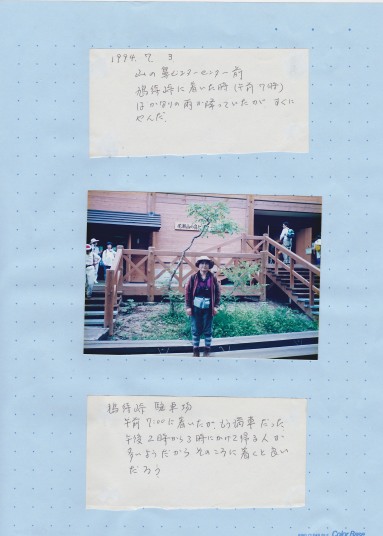 1994. 7. 3
山の鼻ビジターセンター前
鳩待峠に着いた時(午前7時)
はかなりの雨が降っていたが すぐに
やんだ。
鳩待峠 駐車場
午前7:00に着いたが、もう満車だった
午後2時から3時にかけて停る人が
多いようだから そのころに着くと良い
だろう
Color Base